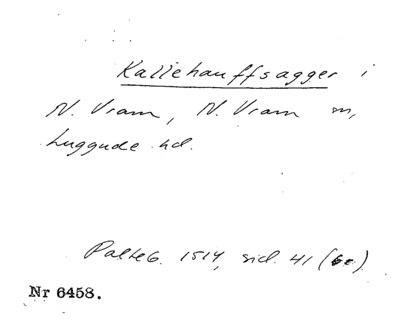 Kallehauffsagger i
N. Vram, N. Vram sn,
Luggude hd.
Palteb. 1514, sid. 41 (60).
Nr 6458.